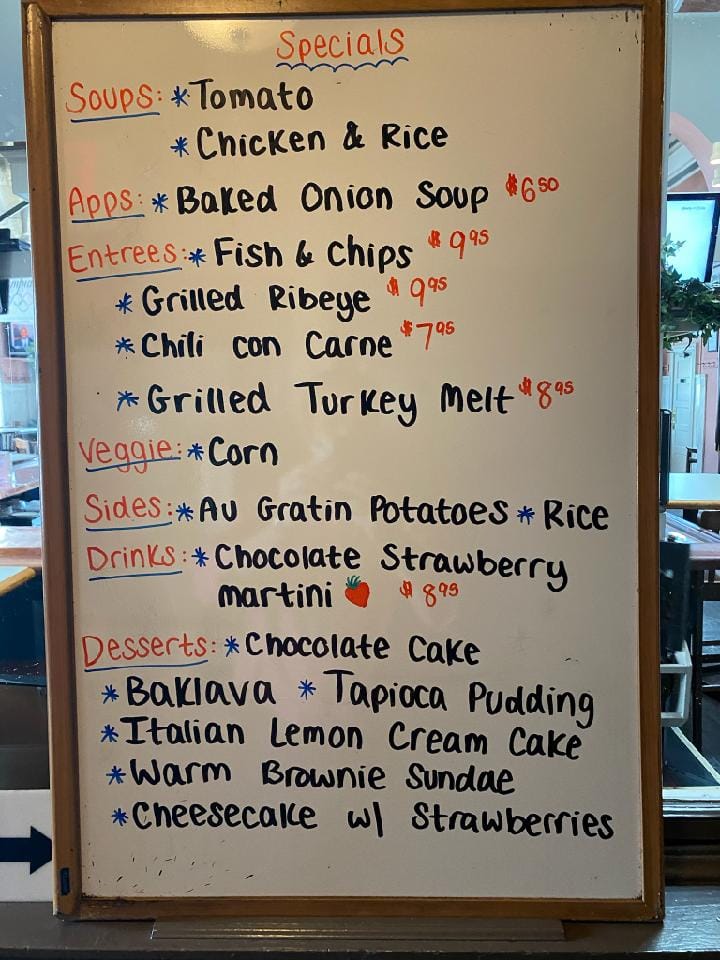 Specials
Soups: * Tomato
* Chicken & Rice
Apps: * Baked Onion Soup $6⁵⁰
Entrees: * Fish & Chips $9⁹⁵
* Grilled Ribeye $9⁹⁵
* Chili con Carne $7⁹⁵
* Grilled Turkey Melt $8⁹⁵
Veggie: * Corn
Sides: * Au Gratin Potatoes * Rice
Drinks: * Chocolate Strawberry
martini $8⁹⁵
Desserts: * Chocolate Cake
* Baklava * Tapioca Pudding
* Italian Lemon Cream Cake
* Warm Brownie Sundae
* Cheesecake w/ Strawberries